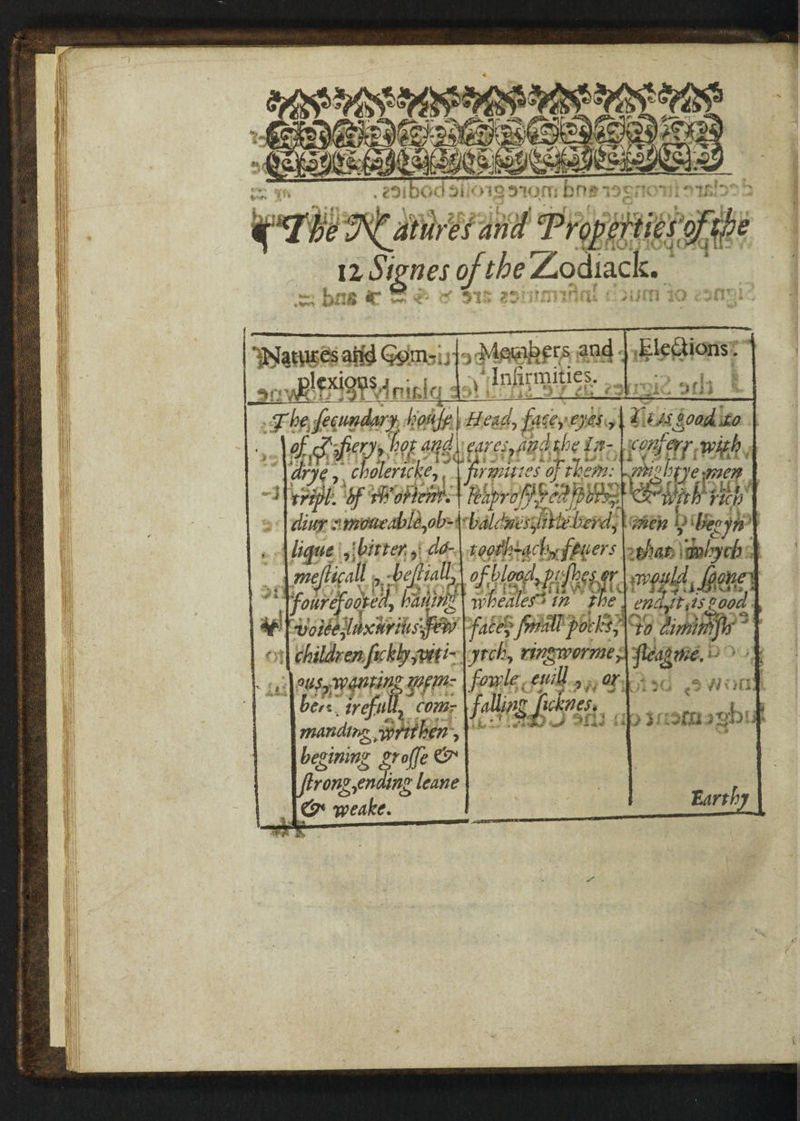 The Natures and Properties of the
12 Signes of the Zodiack.
Natures and Com-
plexions.
The secundary house
of ♂ fiery, hot and
drye, cholericke,
tripl. of orient.
diur : moueable, ob-
lique, bitter, do-
mesticall, bestiall,
fourefooted, hauing
♈ voice, luxurius, few
children, sickly, viti-
ous, wanting mem-
bers, irefull, com-
manding, writhen,
begining grosse &
strong, ending leane
& weake.
Members and
Infirmities.
Head, face, eyes,
eares, and the In-
firmities of them:
leaprosy, red spots,
baldnes, little berd,
tooth-ach, feuers
of blood, pushes or
wheales in the
face, small pocks,
ytch, ringworme,
fowle euill, or
falling sicknes.
Elections.
It is good to
conferr with
mightye men
& with rich
men
begyn
that whych
would soone
end, it is good
to diminish
fleagme.
Earthy